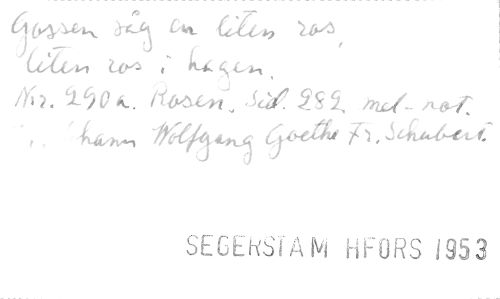 Gossen såg en liten ros,
liten ros i hagen.
Nr. 290a. Rosen. Sid. 282 mel-not.
hann Wolfgang Goethe Fr. Schubert.
SEGERSTAM HFORS 1953